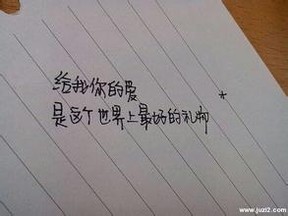 给我你的爱
是这个世界上最好的礼物
www.juzi2.com